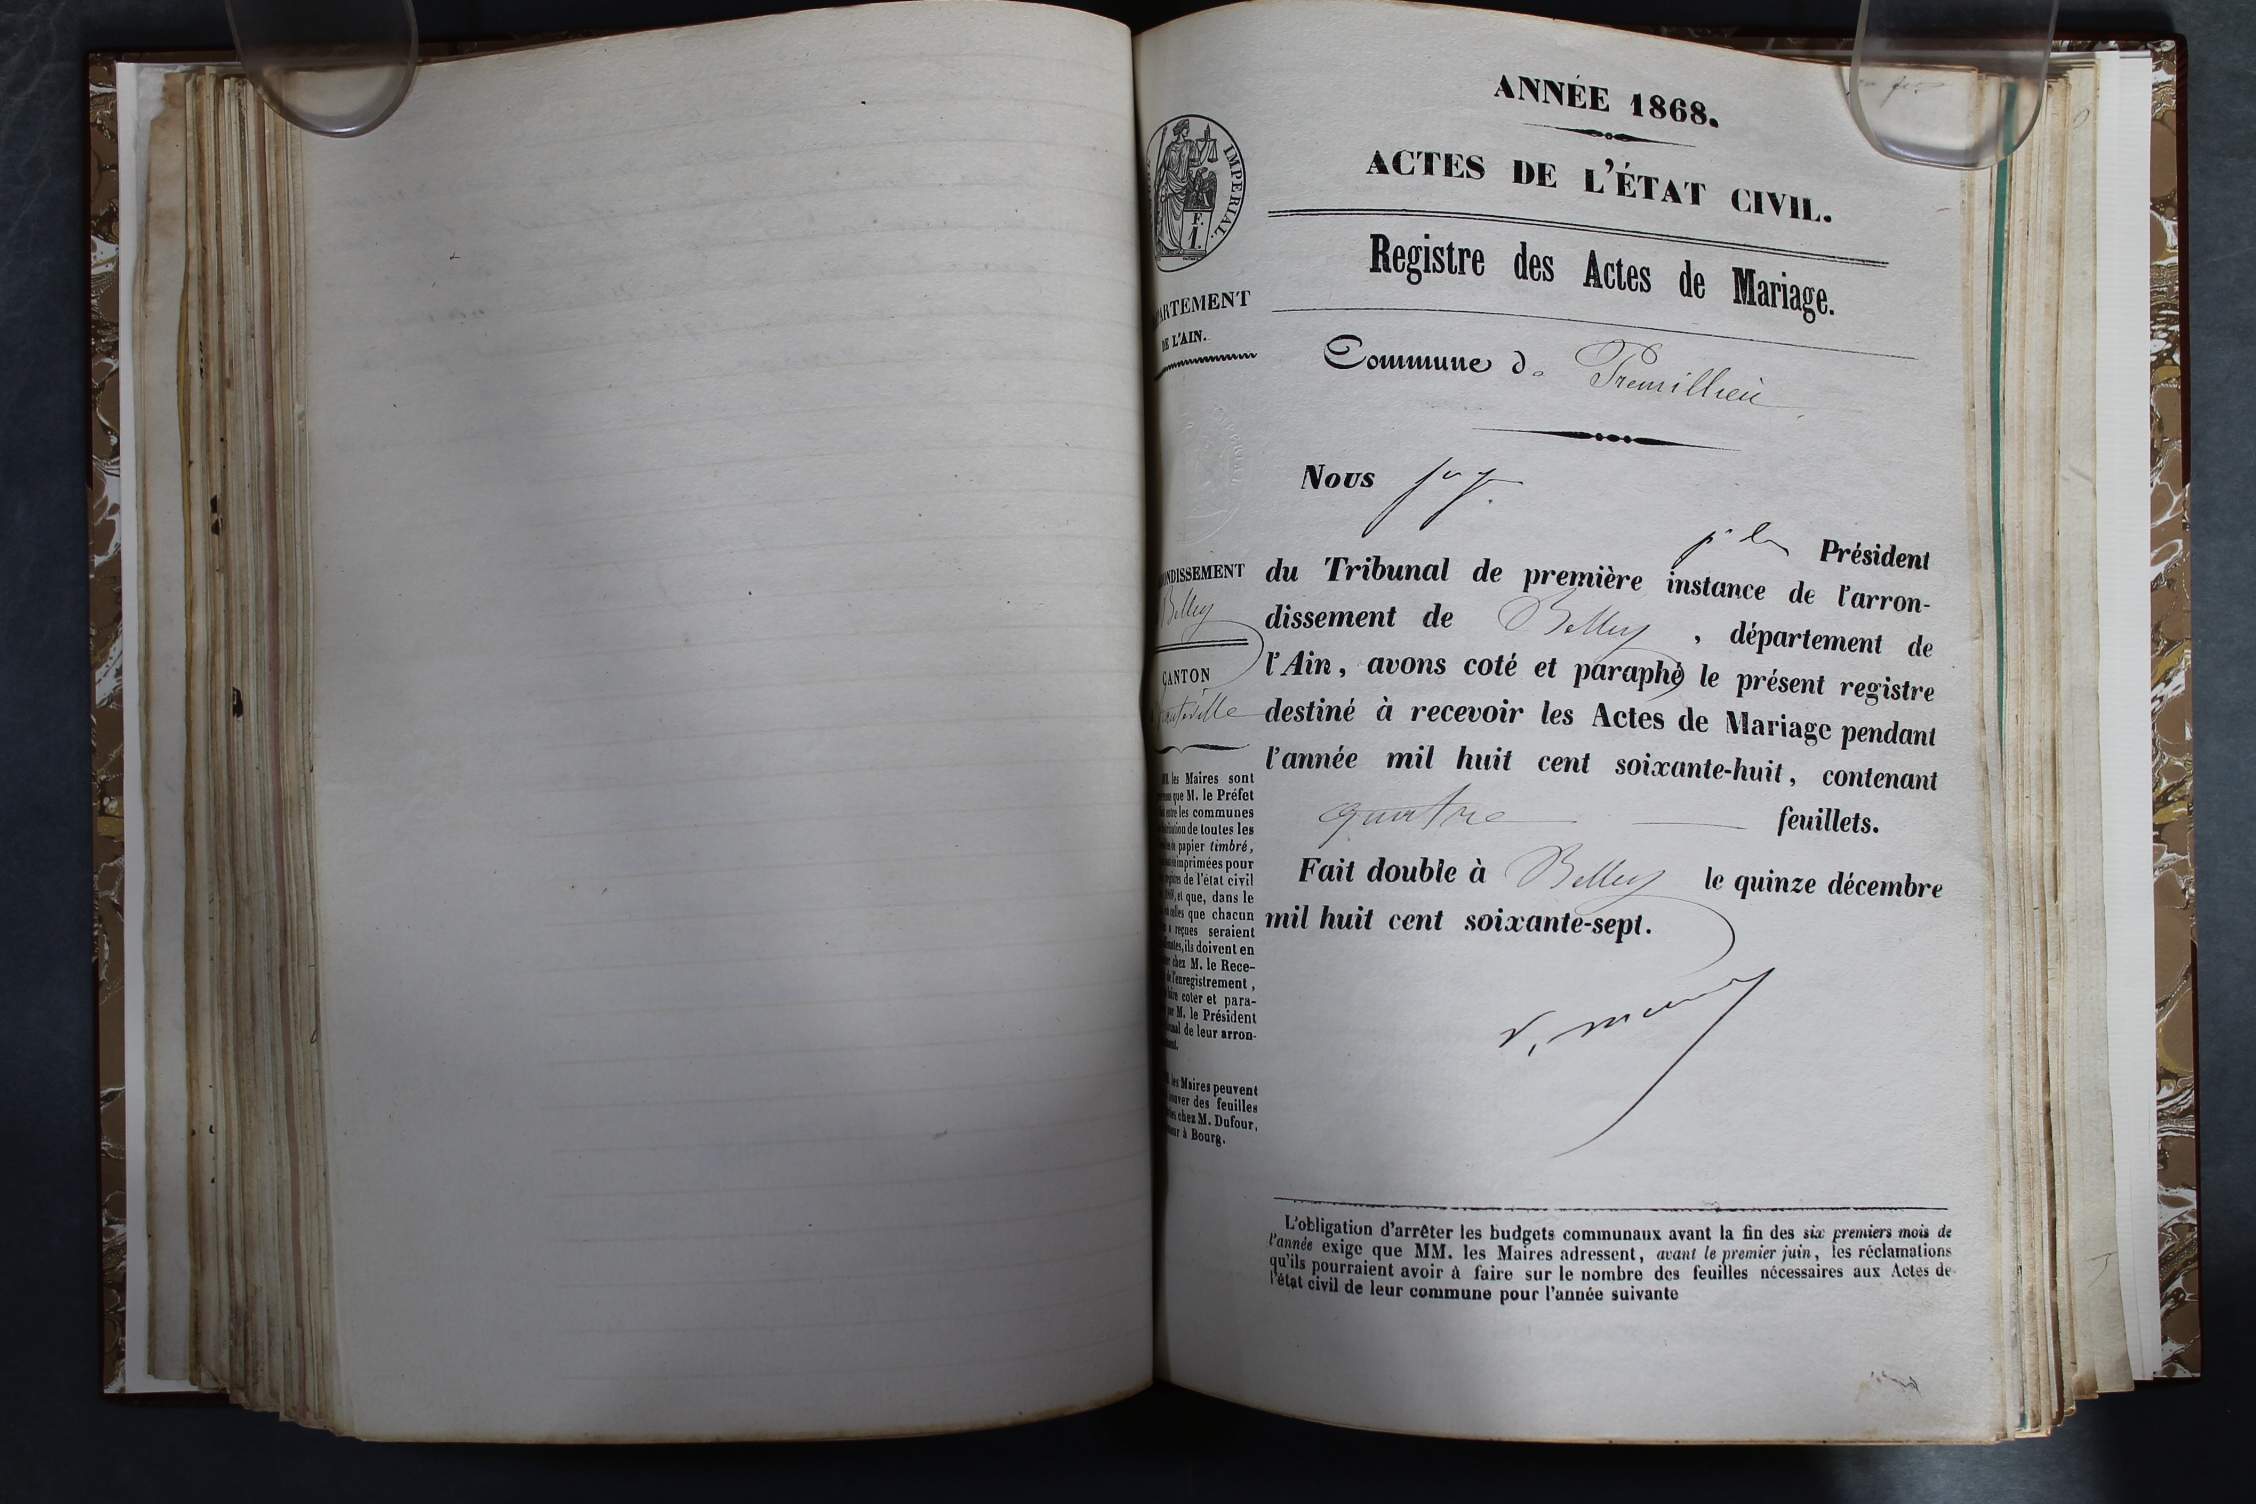 ANNÉE 1868.
ACTES DE L'ÉTAT CIVIL.
Registre des Actes de Mariage.
Commune de Premillieu
IMPÉRIAL.
F.
1.
ARTEMENT
DE L'AIN.
ONDISSEMENT
Belley
CANTON
auteville
les Maires sont
que M. le Préfet
entre les communes
de toutes les
papier timbré,
imprimées pour
de l'état civil
et que, dans le
celles que chacun
reçues seraient
ils doivent en
chez M. le Rece-
de l'enregistrement,
faire coter et para-
par M. le Président
de leur arron-
les Maires peuvent
trouver des feuilles
chez M. Dufour,
à Bourg.
Nous juge
pr le Président
du Tribunal de première instance de l'arron-
dissement de Belley, département de
l'Ain, avons coté et paraphé le présent registre
destiné à recevoir les Actes de Mariage pendant
l'année mil huit cent soixante-huit, contenant
quatre feuillets.
Fait double à Belley le quinze décembre
mil huit cent soixante-sept.
L'obligation d'arrêter les budgets communaux avant la fin des six premiers mois de
l'année exige que MM. les Maires adressent, avant le premier juin, les réclamations
qu'ils pourraient avoir à faire sur le nombre des feuilles nécessaires aux Actes de
l'état civil de leur commune pour l'année suivante